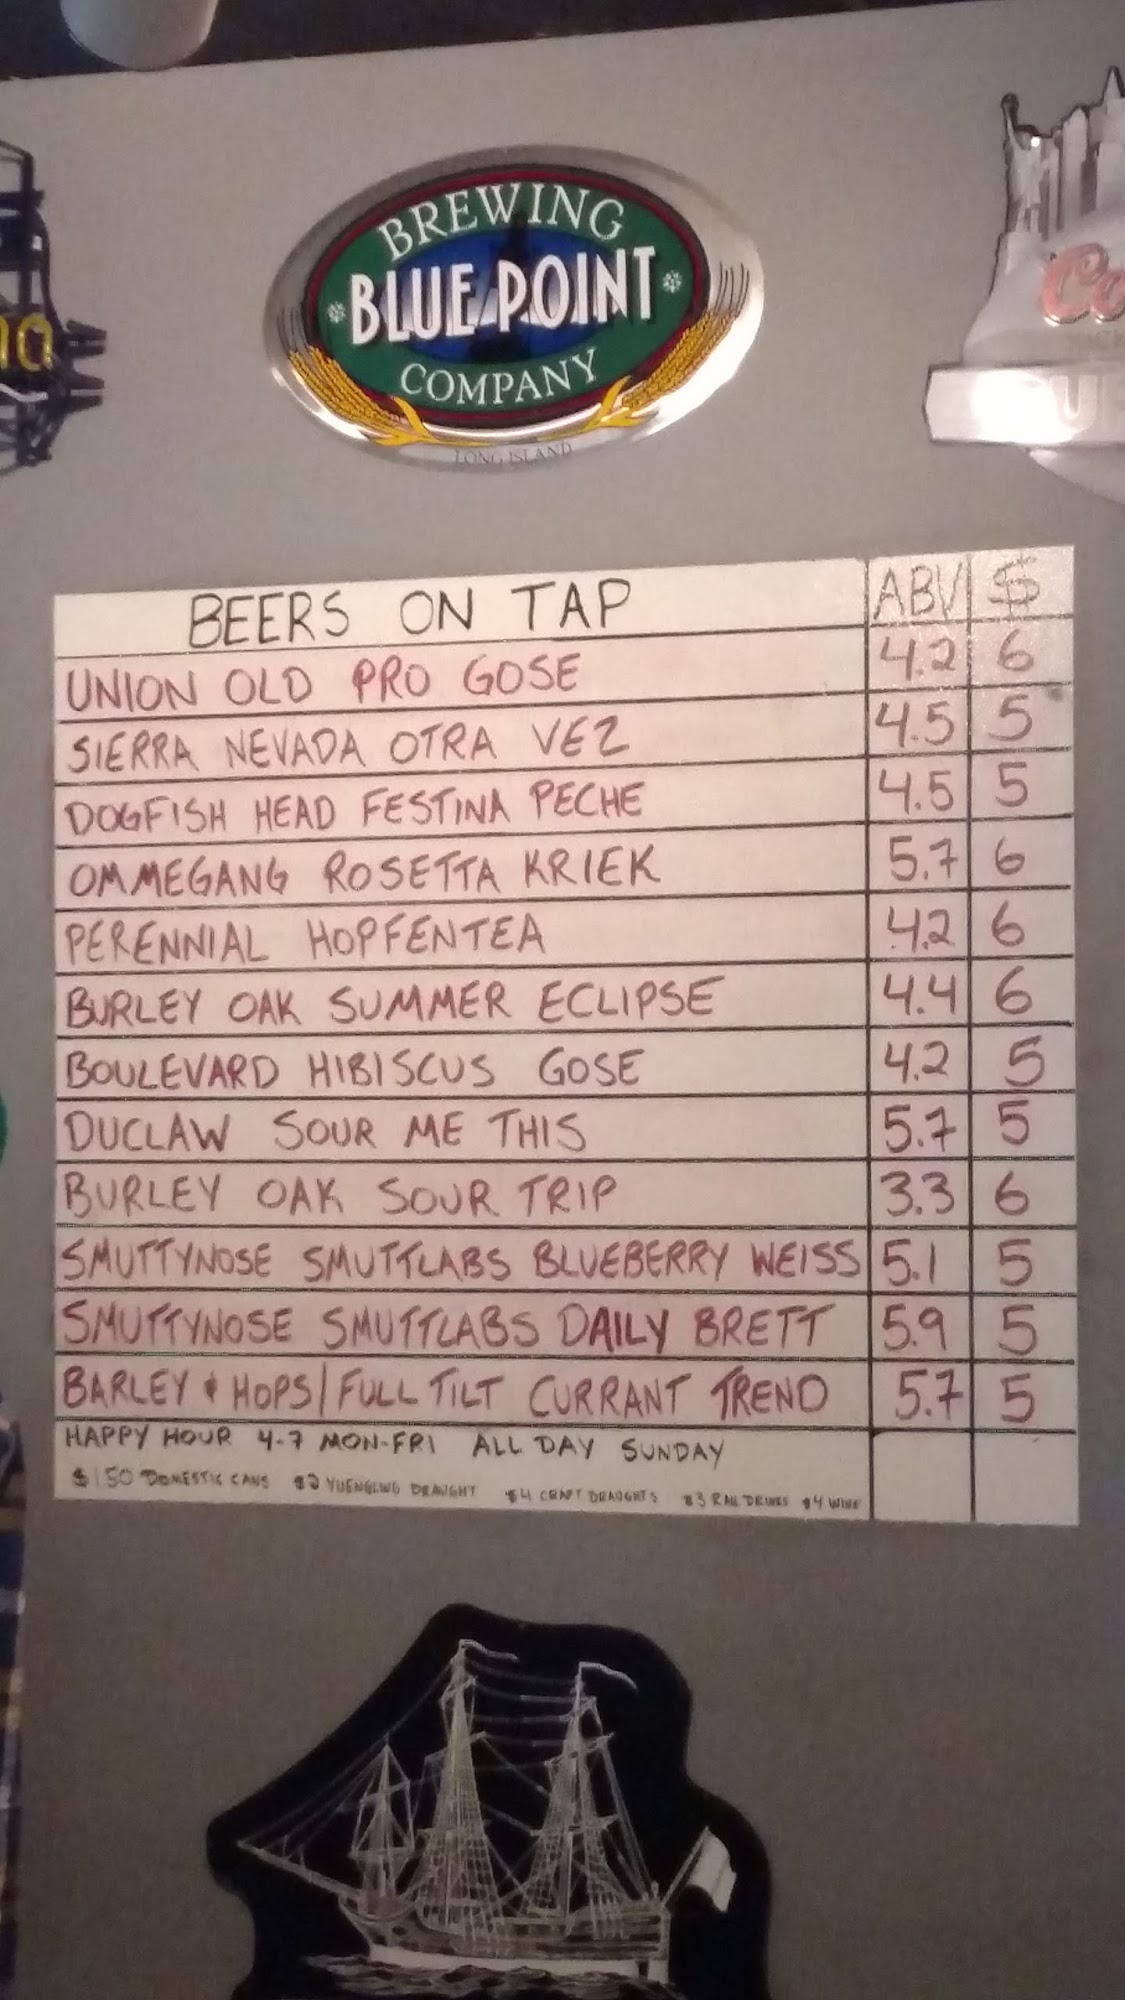 BREWING
BLUE POINT
COMPANY
LONG ISLAND
BEERS ON TAP ABV $
UNION OLD PRO GOSE 4.2 6
SIERRA NEVADA OTRA VEZ 4.5 5
DOGFISH HEAD FESTINA PECHE 4.5 5
OMMEGANG ROSETTA KRIEK 5.7 6
PERENNIAL HOPFENTEA 4.2 6
BURLEY OAK SUMMER ECLIPSE 4.4 6
BOULEVARD HIBISCUS GOSE 4.2 5
DUCLAW SOUR ME THIS 5.7 5
BURLEY OAK SOUR TRIP 3.3 6
SMUTTYNOSE SMUTTLABS BLUEBERRY WEISS 5.1 5
SMUTTYNOSE SMUTTLABS DAILY BRETT 5.9 5
BARLEY & HOPS/FULL TILT CURRANT TREND 5.7 5
HAPPY HOUR 4-7 MON-FRI ALL DAY SUNDAY
$150 DOMESTIC CANS $2 YUENGLING DRAUGHT $4 CRAFT DRAUGHTS $3 RAIL DRINKS $4 WINE